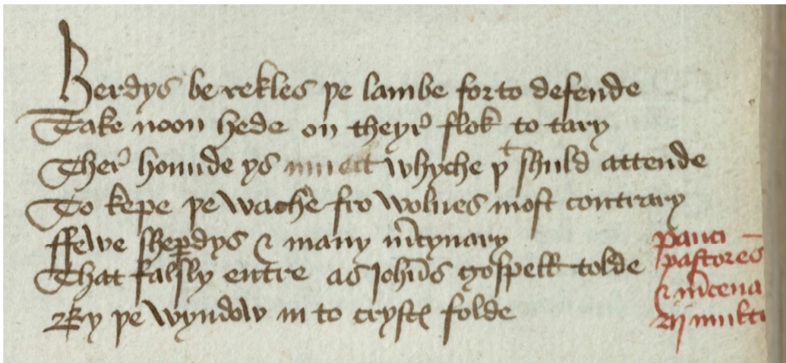 Herdys be rekles þe lambe for to defende
Take noon hede on theyr flok to tary
Ther hounde ys muett whyche þt shuld attende
To kepe þe wache fro wolues most contrary
ffewe shepdys & many mcynary
That falsly entre as Johns gospell tolde
By þe wyndow in to crystes folde
pauci
pastores
& mcena
rij multi